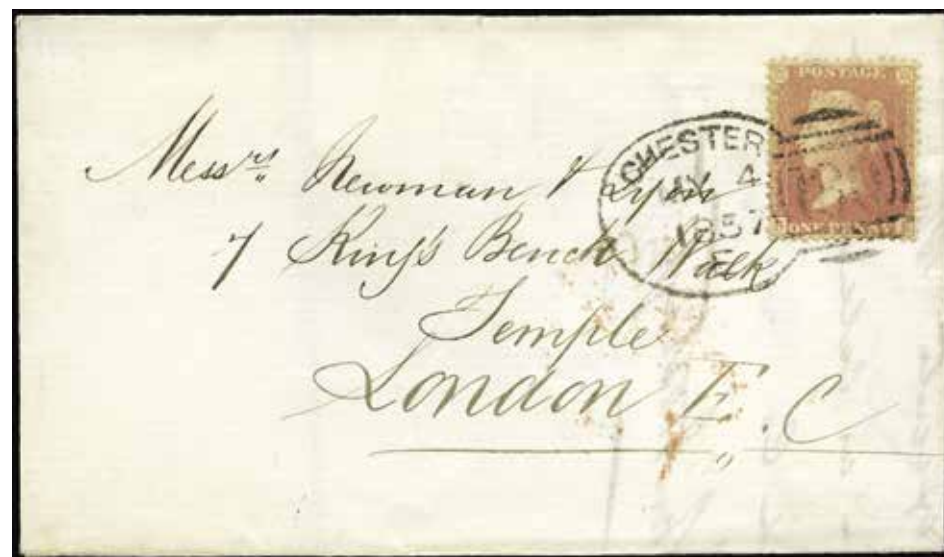 POSTAGE
ONE PENNY
CHESTER
JY 4
1857
Messrs. Newman & Lyon
7 King's Bench Walk
Temple
London E.C